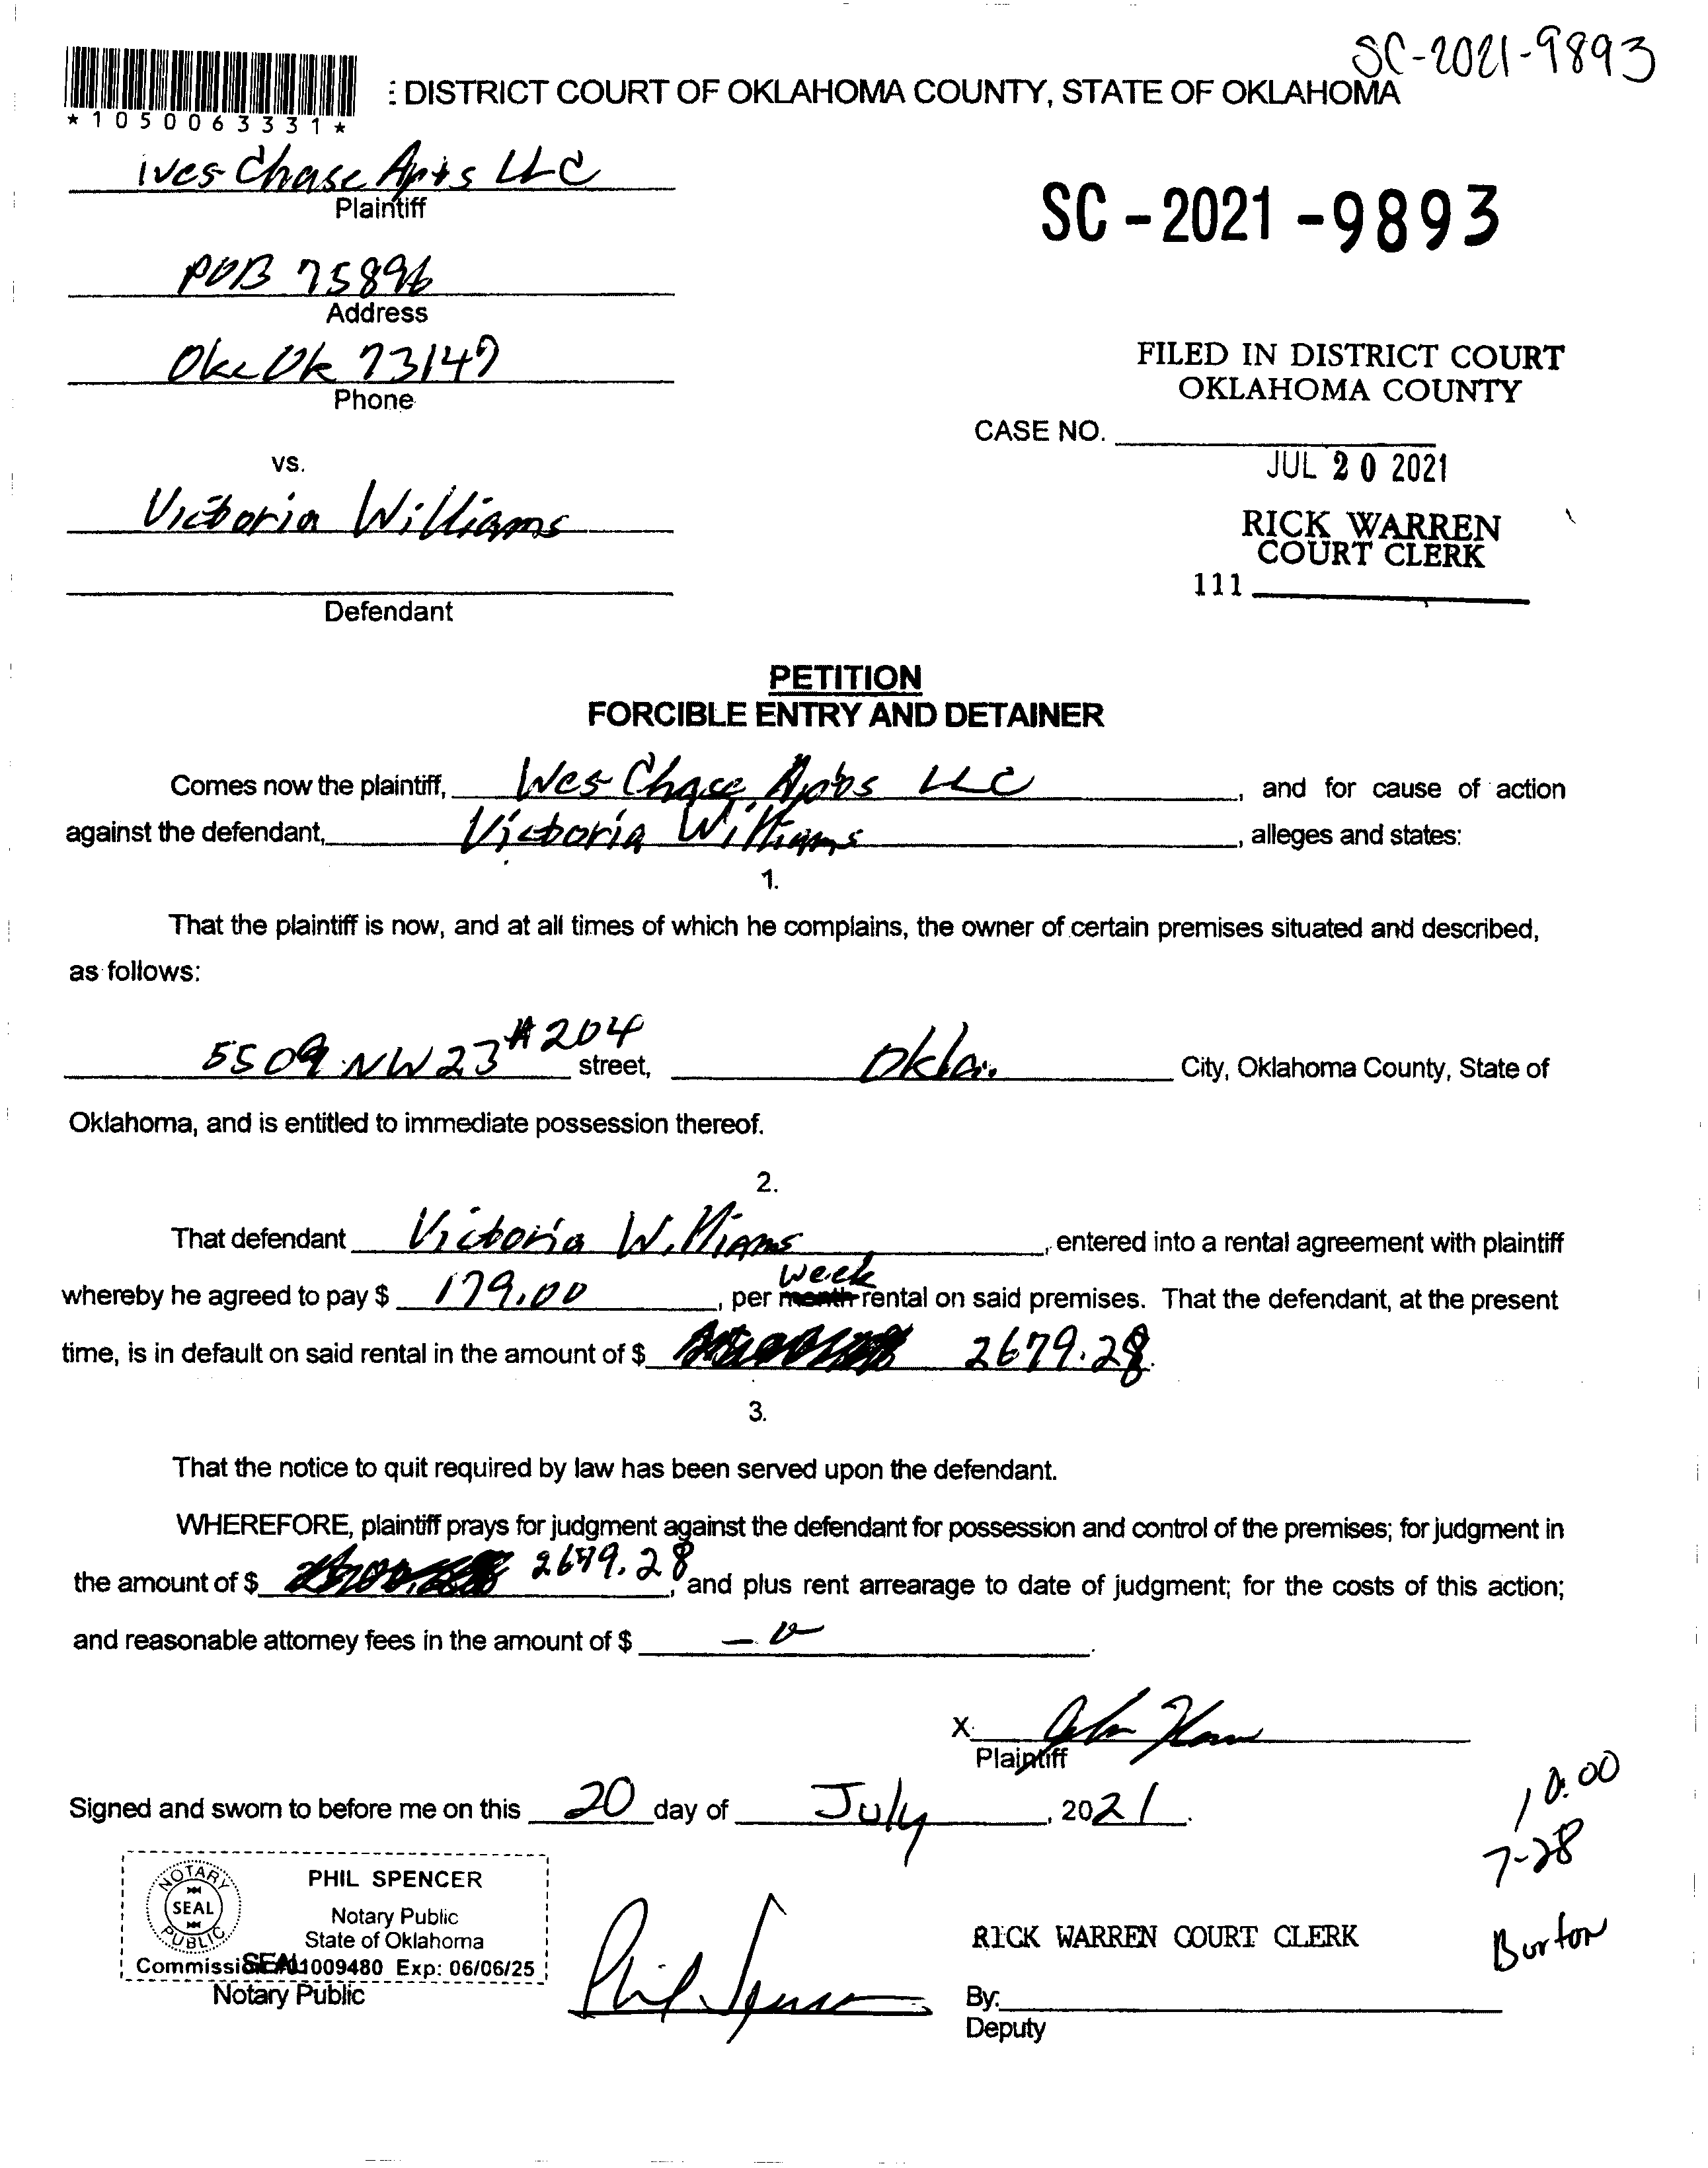 SC-2021-9893
: DISTRICT COURT OF OKLAHOMA COUNTY, STATE OF OKLAHOMA
*1050063331*
Wes Chase Apts LLC
Plaintiff
SC-2021-9893
POB 75896
Address
Okc Ok 73147
Phone
FILED IN DISTRICT COURT
OKLAHOMA COUNTY
CASE NO.
JUL 20 2021
vs.
Victoria Williams
RICK WARREN
COURT CLERK
111
Defendant
PETITION
FORCIBLE ENTRY AND DETAINER
Comes now the plaintiff, Wes Chase Apts LLC, and for cause of action
against the defendant, Victoria Williams, alleges and states:
1.
That the plaintiff is now, and at all times of which he complains, the owner of certain premises situated and described,
as follows:
5509 NW 23 #204 street, Okla. City, Oklahoma County, State of
Oklahoma, and is entitled to immediate possession thereof.
2.
That defendant Victoria Williams, entered into a rental agreement with plaintiff
whereby he agreed to pay $ 179.00, per month week rental on said premises. That the defendant, at the present
time, is in default on said rental in the amount of $ 2679.28.
3.
That the notice to quit required by law has been served upon the defendant.
WHEREFORE, plaintiff prays for judgment against the defendant for possession and control of the premises; for judgment in
the amount of $ 2679.28, and plus rent arrearage to date of judgment; for the costs of this action;
and reasonable attorney fees in the amount of $ -0-.
X
Plaintiff
Signed and sworn to before me on this 20 day of July, 2021.
10:00
7-28
Burton
NOTARY PUBLIC
SEAL
PHIL SPENCER
Notary Public
State of Oklahoma
Commission 1009480 Exp: 06/06/25
SEAL
Notary Public
Phil Spencer
RICK WARREN COURT CLERK
By:
Deputy